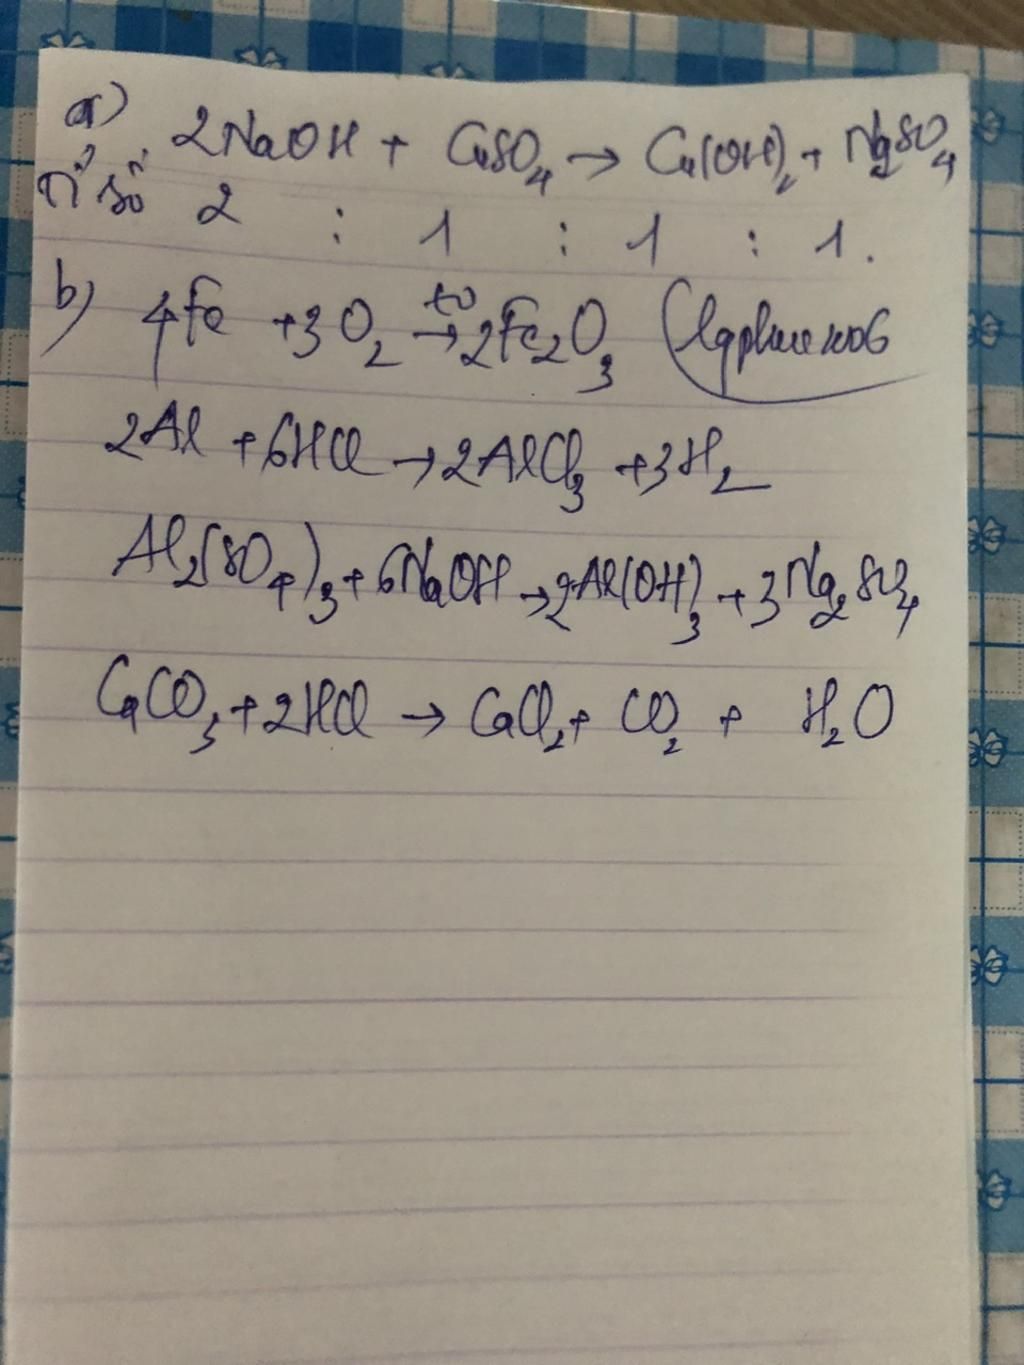 a) 2NaOH + CuSO₄ → Cu(OH)₂ + Na₂SO₄
Tỉ số 2 : 1 : 1 : 1.
b) 4Fe + 3O₂ →t° 2Fe₂O₃
2Al + 6HCl → 2AlCl₃ + 3H₂
Al₂(SO₄)₃ + 6NaOH → 2Al(OH)₃ + 3Na₂SO₄
CaCO₃ + 2HCl → CaCl₂ + CO₂ + H₂O